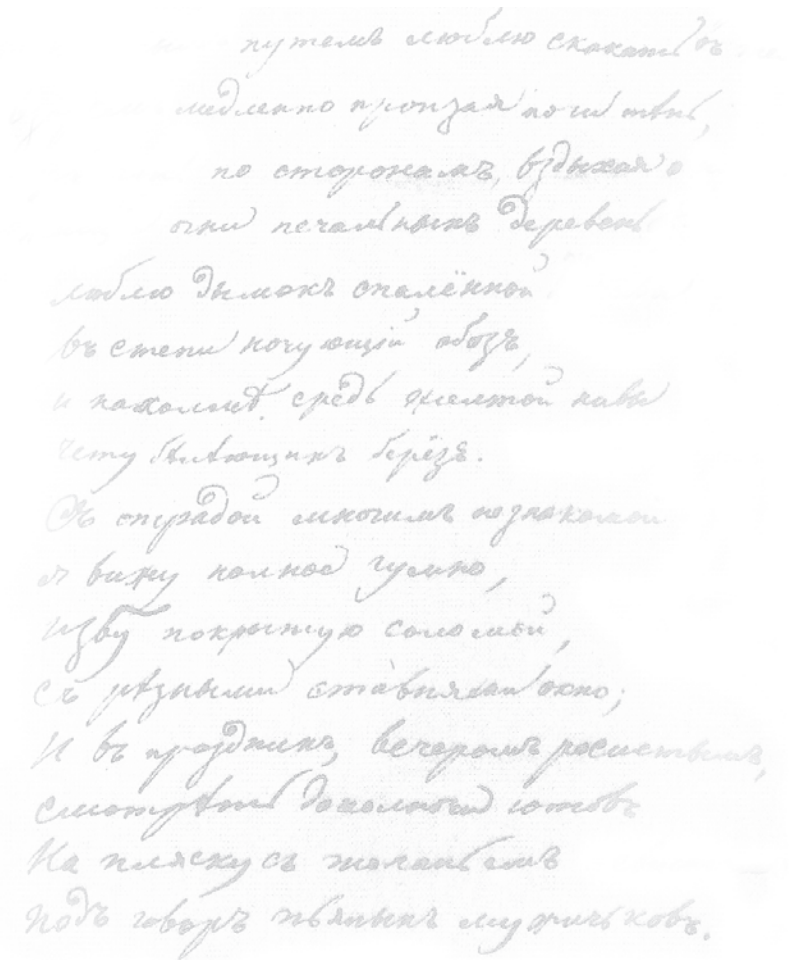 путемъ люблю скакать въ
медленно пронзая ночи тѣнь,
по сторонамъ, вздыхая о
огни печальныхъ деревень
люблю дымокъ спалённой
въ степи ночующій обозъ,
и на холмѣ, средь желтой нивы
чету бѣлѣющихъ берёзъ.
Съ отрадой многимъ незнакомой
я вижу полное гумно,
избу покрытую соломой,
съ рѣзными ставнями окно;
И въ праздникъ, вечеромъ росистымъ,
смотрѣть до полночи готовъ
На пляску съ топаньемъ
Подъ говоръ пьяныхъ мужичьковъ.